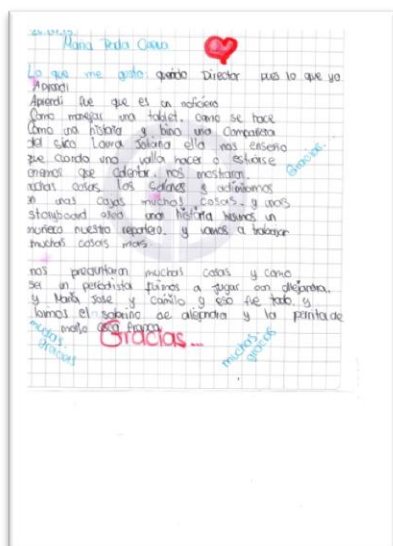 Maria Paula
Lo que me gusto: querido Director pues lo que yo
Aprendi
Aprendi fue que es un noticiero
Como manejar una tablet, como se hace
Como una historia y bino una Compañera
del sico Laura Juliana ella nos enseño
que cuando uno valla hacer o estirarse
enemos que calentar, nos mostraron,
muchas cosas, los salones y adibinamos
en unas cajas muchas cosas, y unos
storyboard una historia hisimos un
muñeco nuestro reportero, y vamos a trabajar
muchas cosas mas.
Gracias.
nos preguntaron muchas cosas y como
ser un periodista fuimos a jugar con alejandra,
y Maria Jose y Camilo y eso fue todo, y
el sobrino de alejandra y la perrita de
Gracias...
muchas
gracias
muchas
gracias